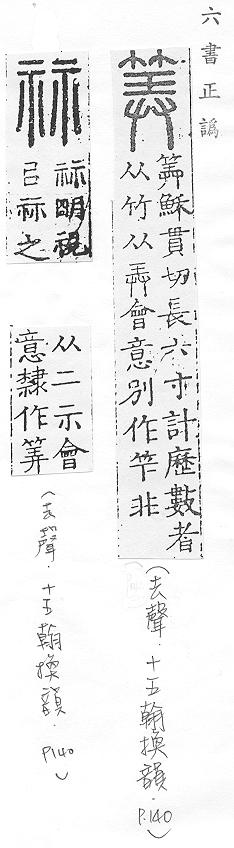 六書正譌
筭
筭穌貫切長六寸計歷數者
从竹从弄會意別作笇非
(去聲．十五翰換韻．P.140)
祘
祘明視
㠯祘之
从二示會
意隸作筭
(去聲．十五翰換韻．P.140)